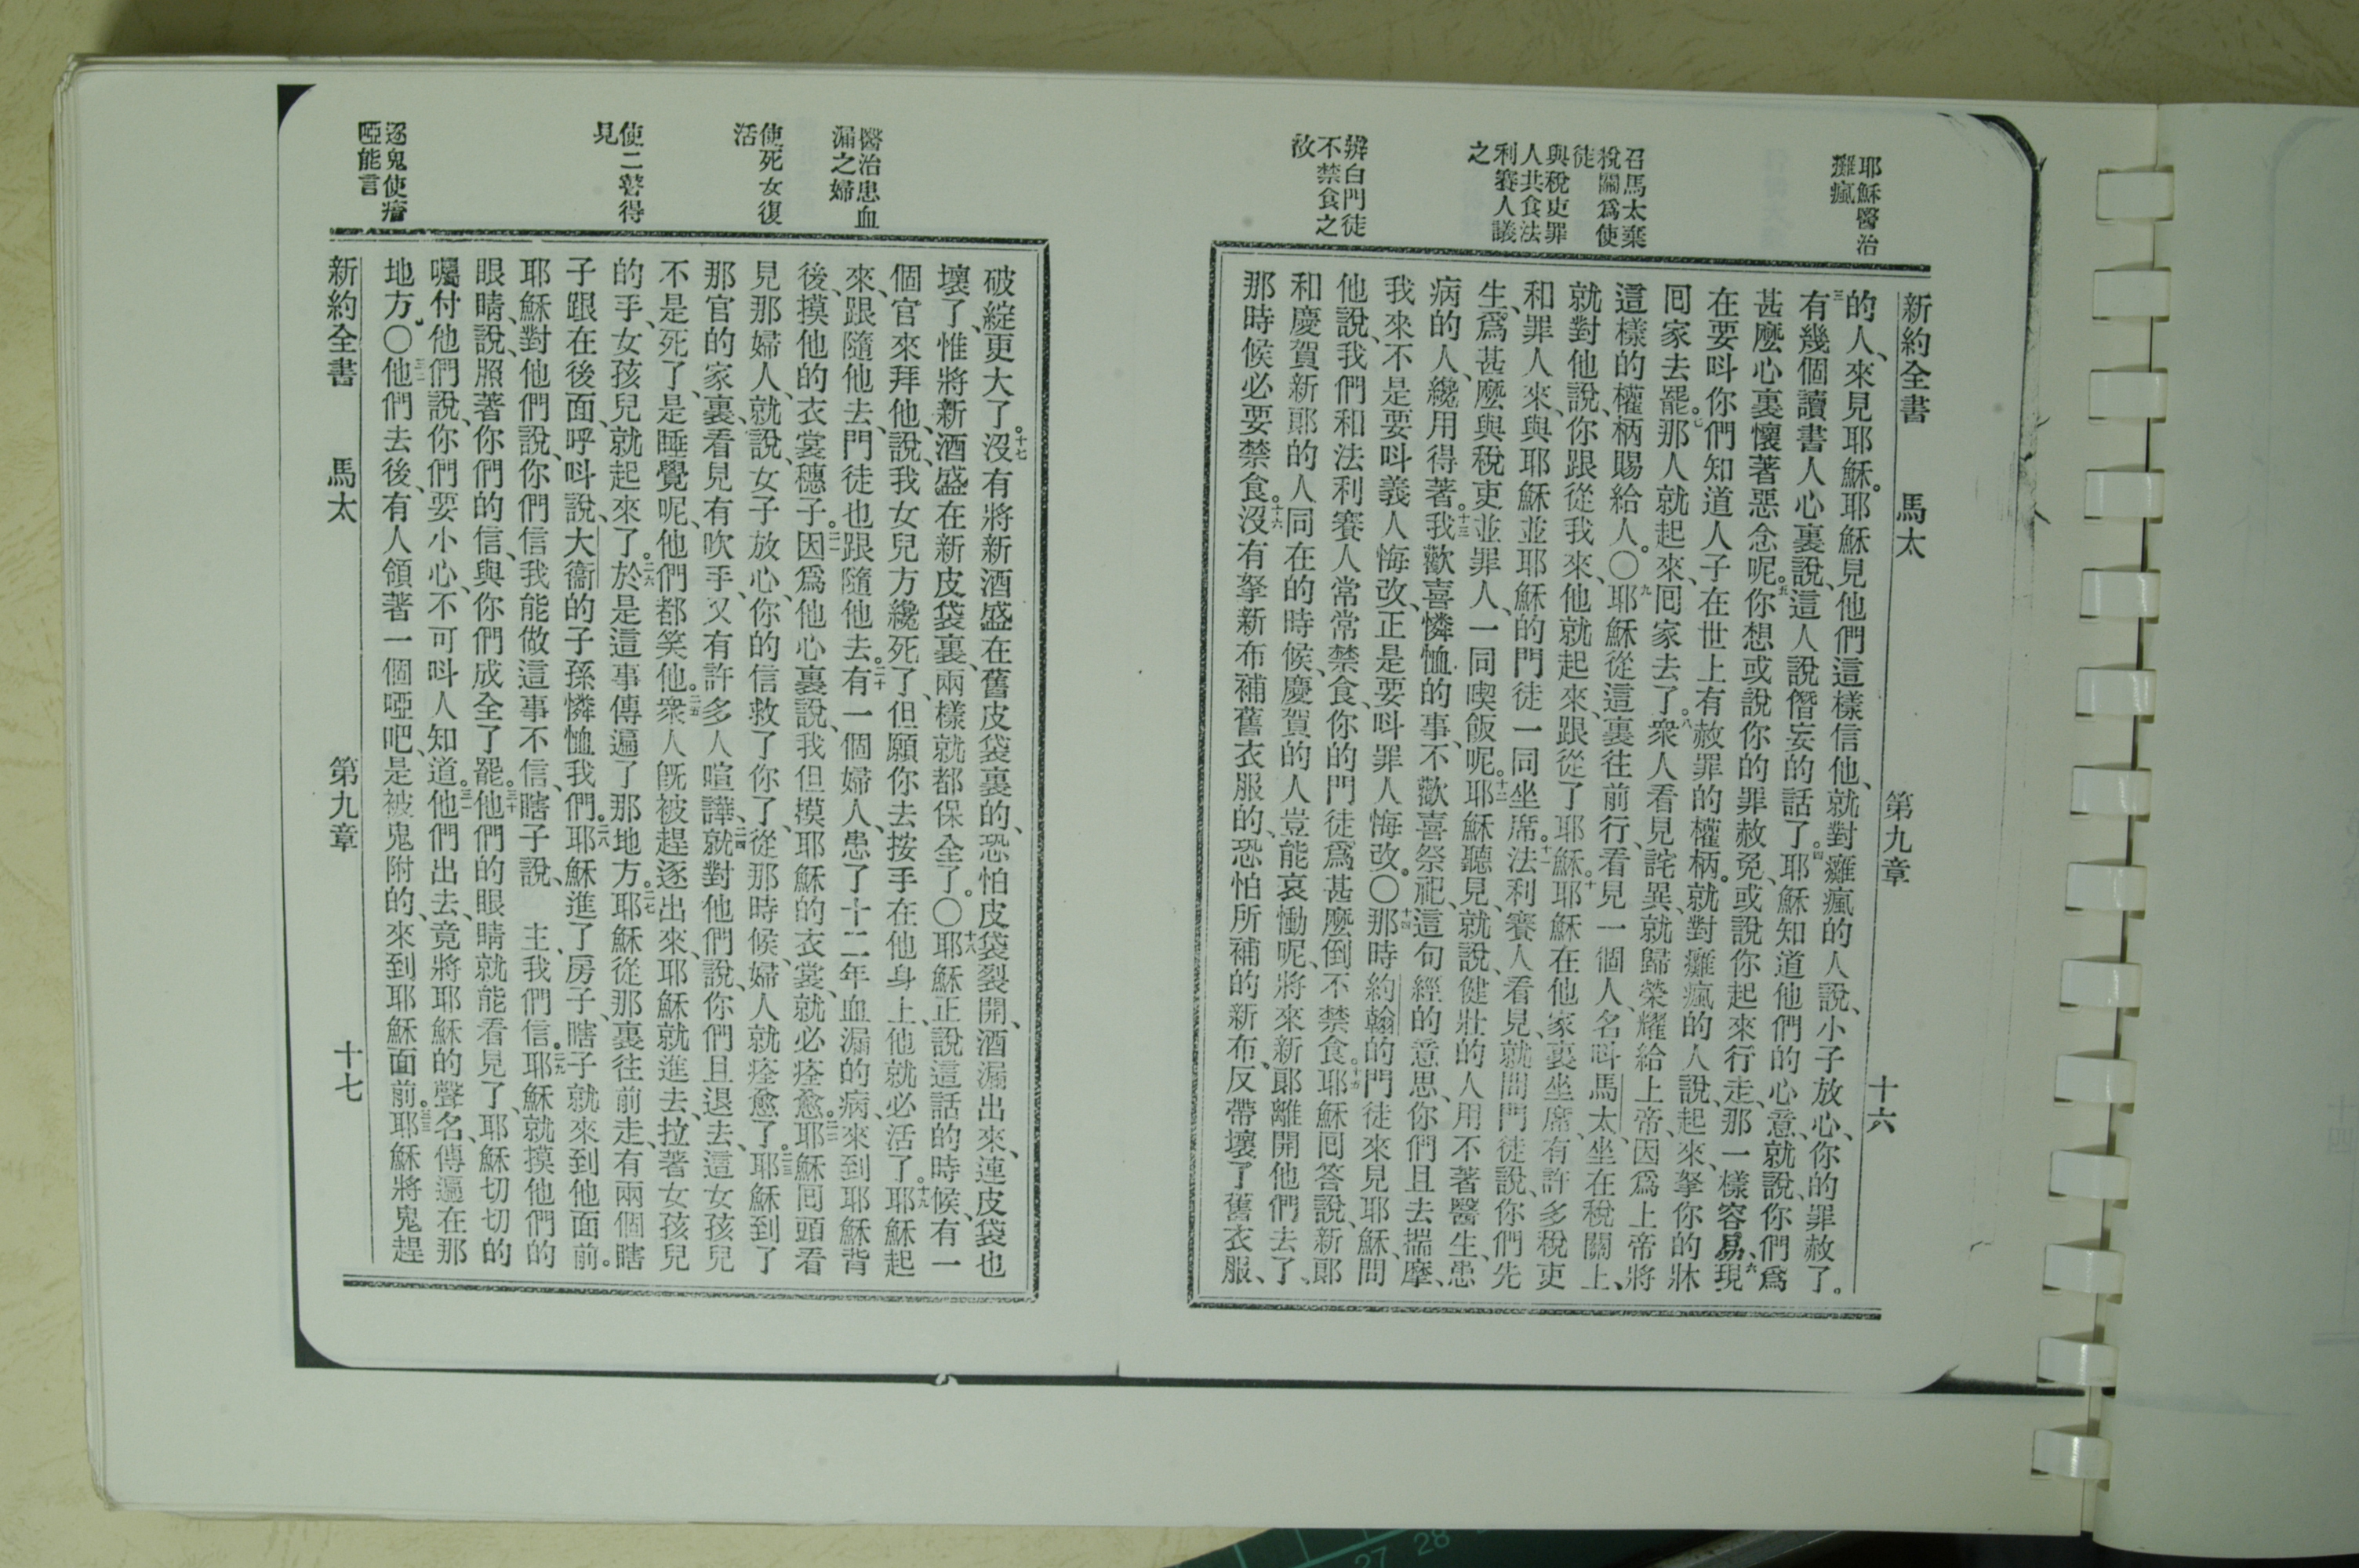 耶穌醫治
癱瘋
召馬太棄
稅關爲使
徒
與稅吏罪
人共食法
利賽人議
之
辨白門徒
不禁食之
故
新約全書 馬太 第九章 十六
的人、來見耶穌。耶穌見他們這樣信他、就對癱瘋的人說、小子放心、你的罪赦了。
三有幾個讀書人心裏說、這人說僭妄的話了。四耶穌知道他們的心意、就說、你們爲
甚麽心裏懷著惡念呢。五你想或說你的罪赦免、或說你起來行走、那一樣容易、六現
在要呌你們知道人子在世上有赦罪的權柄。就對癱瘋的人說、起來、拏你的牀
囘家去罷。七那人就起來、囘家去了。八衆人看見詫異、就歸榮耀給上帝、因爲上帝將
這樣的權柄賜給人。〇九耶穌從這裏往前行、看見一個人、名呌馬太、坐在稅關上、
就對他說、你跟從我來、他就起來、跟從了耶穌。十耶穌在他家裏坐席、有許多稅吏
和罪人來、與耶穌並耶穌的門徒一同坐席。十一法利賽人看見、就問門徒說、你們先
生、爲甚麽與稅吏並罪人、一同喫飯呢。十二耶穌聽見、就說、健壯的人用不著醫生、患
病的人、纔用得著。十三我歡喜憐恤的事、不歡喜祭祀、這句經的意思、你們且去揣摩、
我來不是要呌義人悔改、正是要呌罪人悔改。〇十四那時約翰的門徒來見耶穌、問
他說、我們和法利賽人常常禁食、你的門徒爲甚麽倒不禁食。十五耶穌囘答說、新郎
和慶賀新郎的人同在的時候、慶賀的人豈能哀慟呢、將來新郎離開他們去了、
那時候必要禁食。十六沒有拏新布補舊衣服的、恐怕所補的新布、反帶壞了舊衣服、
醫治患血
漏之婦
使死女復
活
使二瞽得
見
逐鬼使瘖
啞能言
破綻更大了。十七沒有將新酒盛在舊皮袋裏的、恐怕皮袋裂開、酒漏出來、連皮袋也
壞了、惟將新酒盛在新皮袋裏、兩樣就都保全了。〇十八耶穌正說這話的時候、有一
個官來拜他、說、我女兒方纔死了、但願你去按手在他身上、他就必活了。十九耶穌起
來、跟隨他去、門徒也跟隨他去。二十有一個婦人、患了十二年血漏的病、來到耶穌背
後、摸他的衣裳穗子。二一因爲他心裏說、我但摸耶穌的衣裳、就必痊愈。二二耶穌囘頭看
見那婦人、就說、女子放心、你的信救了你了、從那時候、婦人就痊愈了。二三耶穌到了
那官的家裏、看見有吹手、又有許多人喧譁、二四就對他們說、你們且退去、這女孩兒
不是死了、是睡覺呢、他們都笑他。二五衆人旣被趕逐出來、耶穌就進去、拉著女孩兒
的手、女孩兒就起來了。二六於是這事傳遍了那地方。二七耶穌從那裏往前走、有兩個瞎
子跟在後面、呼呌說、大衞的子孫憐恤我們。二八耶穌進了房子、瞎子就來到他面前。
耶穌對他們說、你們信我能做這事不信、瞎子說、 主、我們信。二九耶穌就摸他們的
眼睛、說、照著你們的信、與你們成全了罷。三十他們的眼睛就能看見了、耶穌切切的
囑付他們說、你們要小心、不可呌人知道。三一他們出去、竟將耶穌的聲名、傳遍在那
地方。〇三二他們去後、有人領著一個啞吧、是被鬼附的、來到耶穌面前。三三耶穌將鬼趕
新約全書 馬太 第九章 十七
27 28